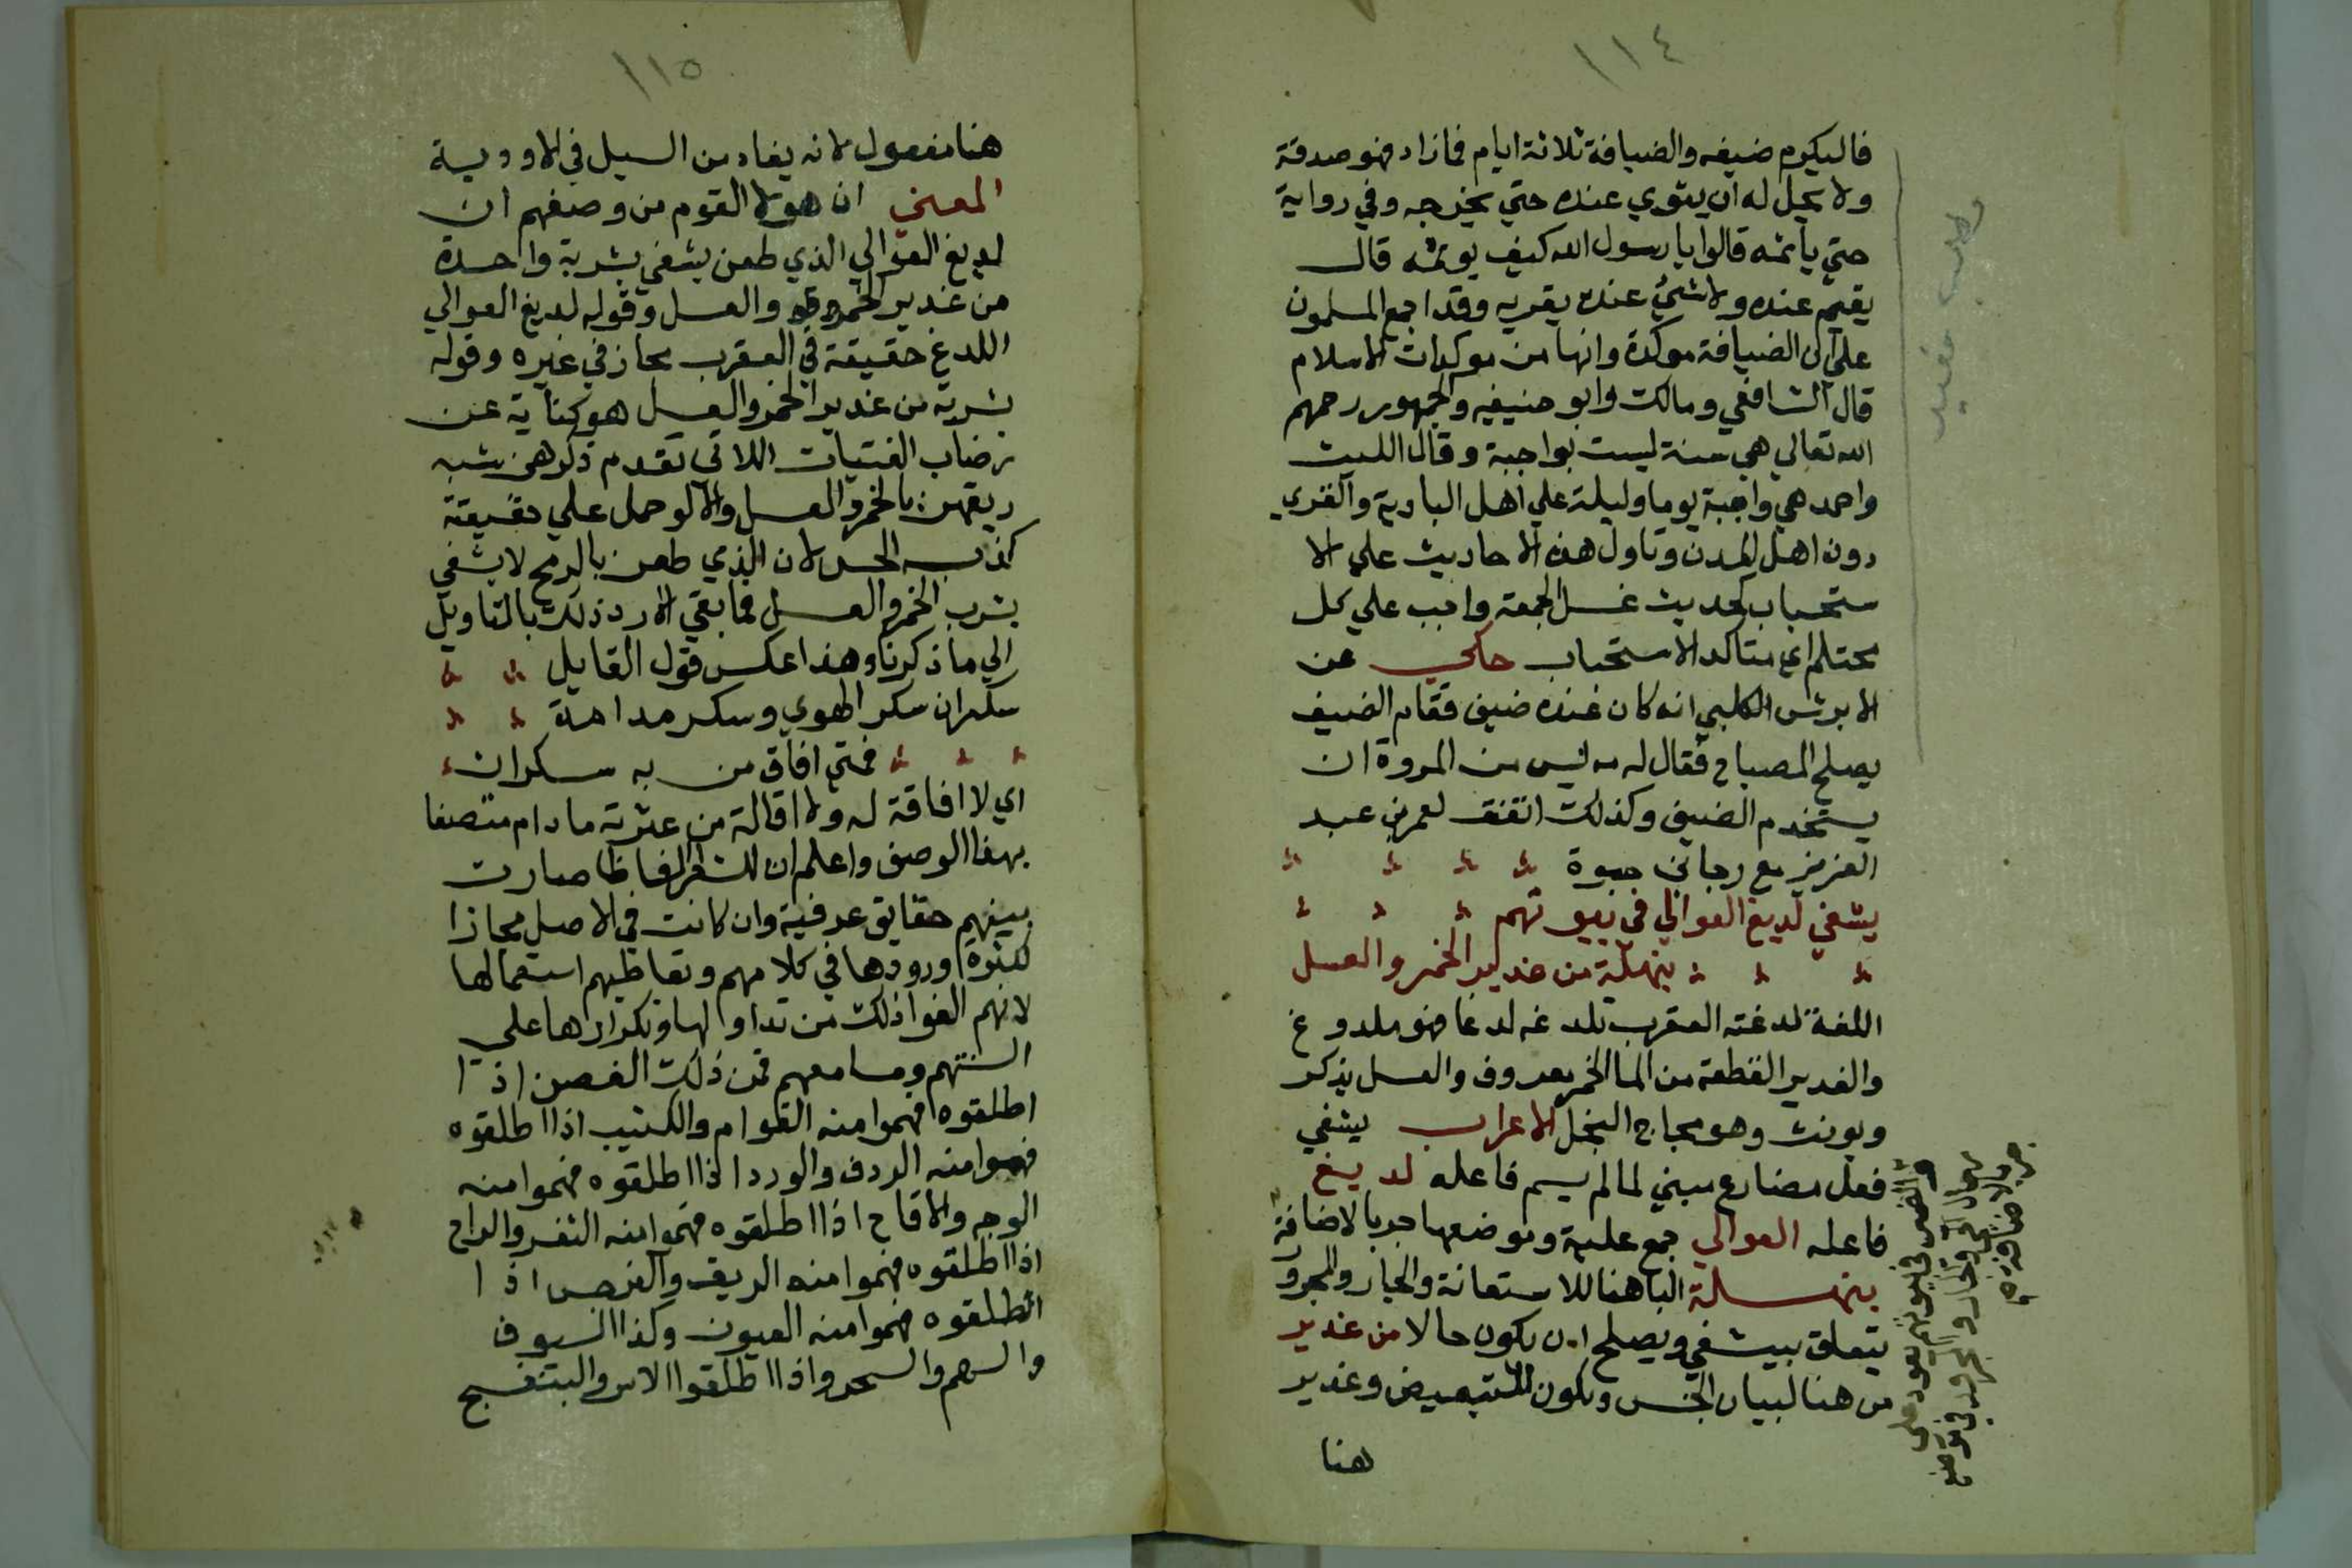 ١١٤
فاليكرم ضيفه والضيافة ثلاثة ايام فما زاد فهو صدقة
ولا يحل له ان يثوي عنده حتي يخرجه وفي رواية
حتي ياثمه قالوا يا رسول الله كيف يوثمه قال
يقيم عنده ولا شئ عنده يقريه وقد اجمع المسلمون
علي ان الضيافة موكدة وانها من موكدات الاسلام
قال الشافعي ومالك وابو حنيفيه والجمهور رحمهم
الله تعالي هي سنة ليست بواجبة وقال الليث
واحمد هي واجبة يوما وليلة علي اهل البادية والقري
دون اهل المدن وتاول هذه الاحاديث علي الا
ستحباب كحديث غسل الجمعة واجب علي كل
محتلم اي متاكد الاستحباب حكي عن
الابرش الكلبي انه كان عنده ضيف فقام الضيف
يصلح المصباح فقال له مه ليس من المروة ان
يستخدم الضيف وكذلك اتفق لعمر بن عبد
العزيز مع رجا بن حيوة
يشفي لديغ العوالي في بيوتهم
بنهلة من غدير الخمر والعسل
اللغة لدغته العقرب تلدغه لدغا فهو ملدوغ
والغدير القطعة من الما الخمر معروف والعسل يذكر
ويونث وهو مجاج النحل الاعراب يشفي
فعل مضارع مبني لما لم يسم فاعله لديغ
فاعله العوالي جمع علية وموضعها جر بالاضافة
بنهسلة البا هنا للاستعانة والجار والمجرو
يتعلق بيشفي ويصلح ان يكون حالا من غدير
من هنا لبيان الجنس وتكون للتبعيض وغدير
هنا
في بيوتهم يعود علي
والجار والمجرور في موضع
جر بالاضافة
١١٥
هنا مفعول لانه يغادر من السيل في الاودية
المعني ان هولا القوم من وصفهم ان
لديغ العوالي الذي طعن يشفي بشربة واحدة
من غدير الخمر والعسل وقوله لديغ العوالي
اللدغ حقيقة في العقرب مجاز في غيره وقوله
بشربة من غدير الخمر والعسل هو كناية عن
رضاب الفتيات اللاتي تقدم ذكرهن شبه
ريقهن بالخمر والعسل والا لو حمل علي حقيقته
كذب الحس لان الذي طعن بالرمح لا يشفي
بشرب الخمر والعسل فما بقي الا رد ذلك بالتاويل
الي ما ذكرنا وهذا عكس قول القايل
سكران سكر الهوي وسكر مدامة
فمتي افاق من به سكران
اي لا افاقة له ولا اقالة من عثرته ما دام متصفا
بهذا الوصف واعلم ان للشعرا الفاظا صارت
بينهم حقايق عرفية وان كانت في الاصل مجازا
لكثوة ورودها في كلامهم وتعاطيهم استعمالها
لانهم الفوا ذلك من تداولها وتكرارها علي
السنتهم ومسامعهم فمن ذلك الغصن اذا
اطلقوه فهموا منه القوام والكثيب اذا اطلقوه
فهموا منه الردف والورد اذا اطلقوه فهموا منه
الوجه والاقاح اذا اطلقوه فهموا منه الثغر والراح
اذا اطلقوه فهموا منه الريق والنرجس اذا
اطلقوه فهموا منه العيون وكذا السيوف
والسهم والسحر واذا اطلقوا الاس والبنفسج